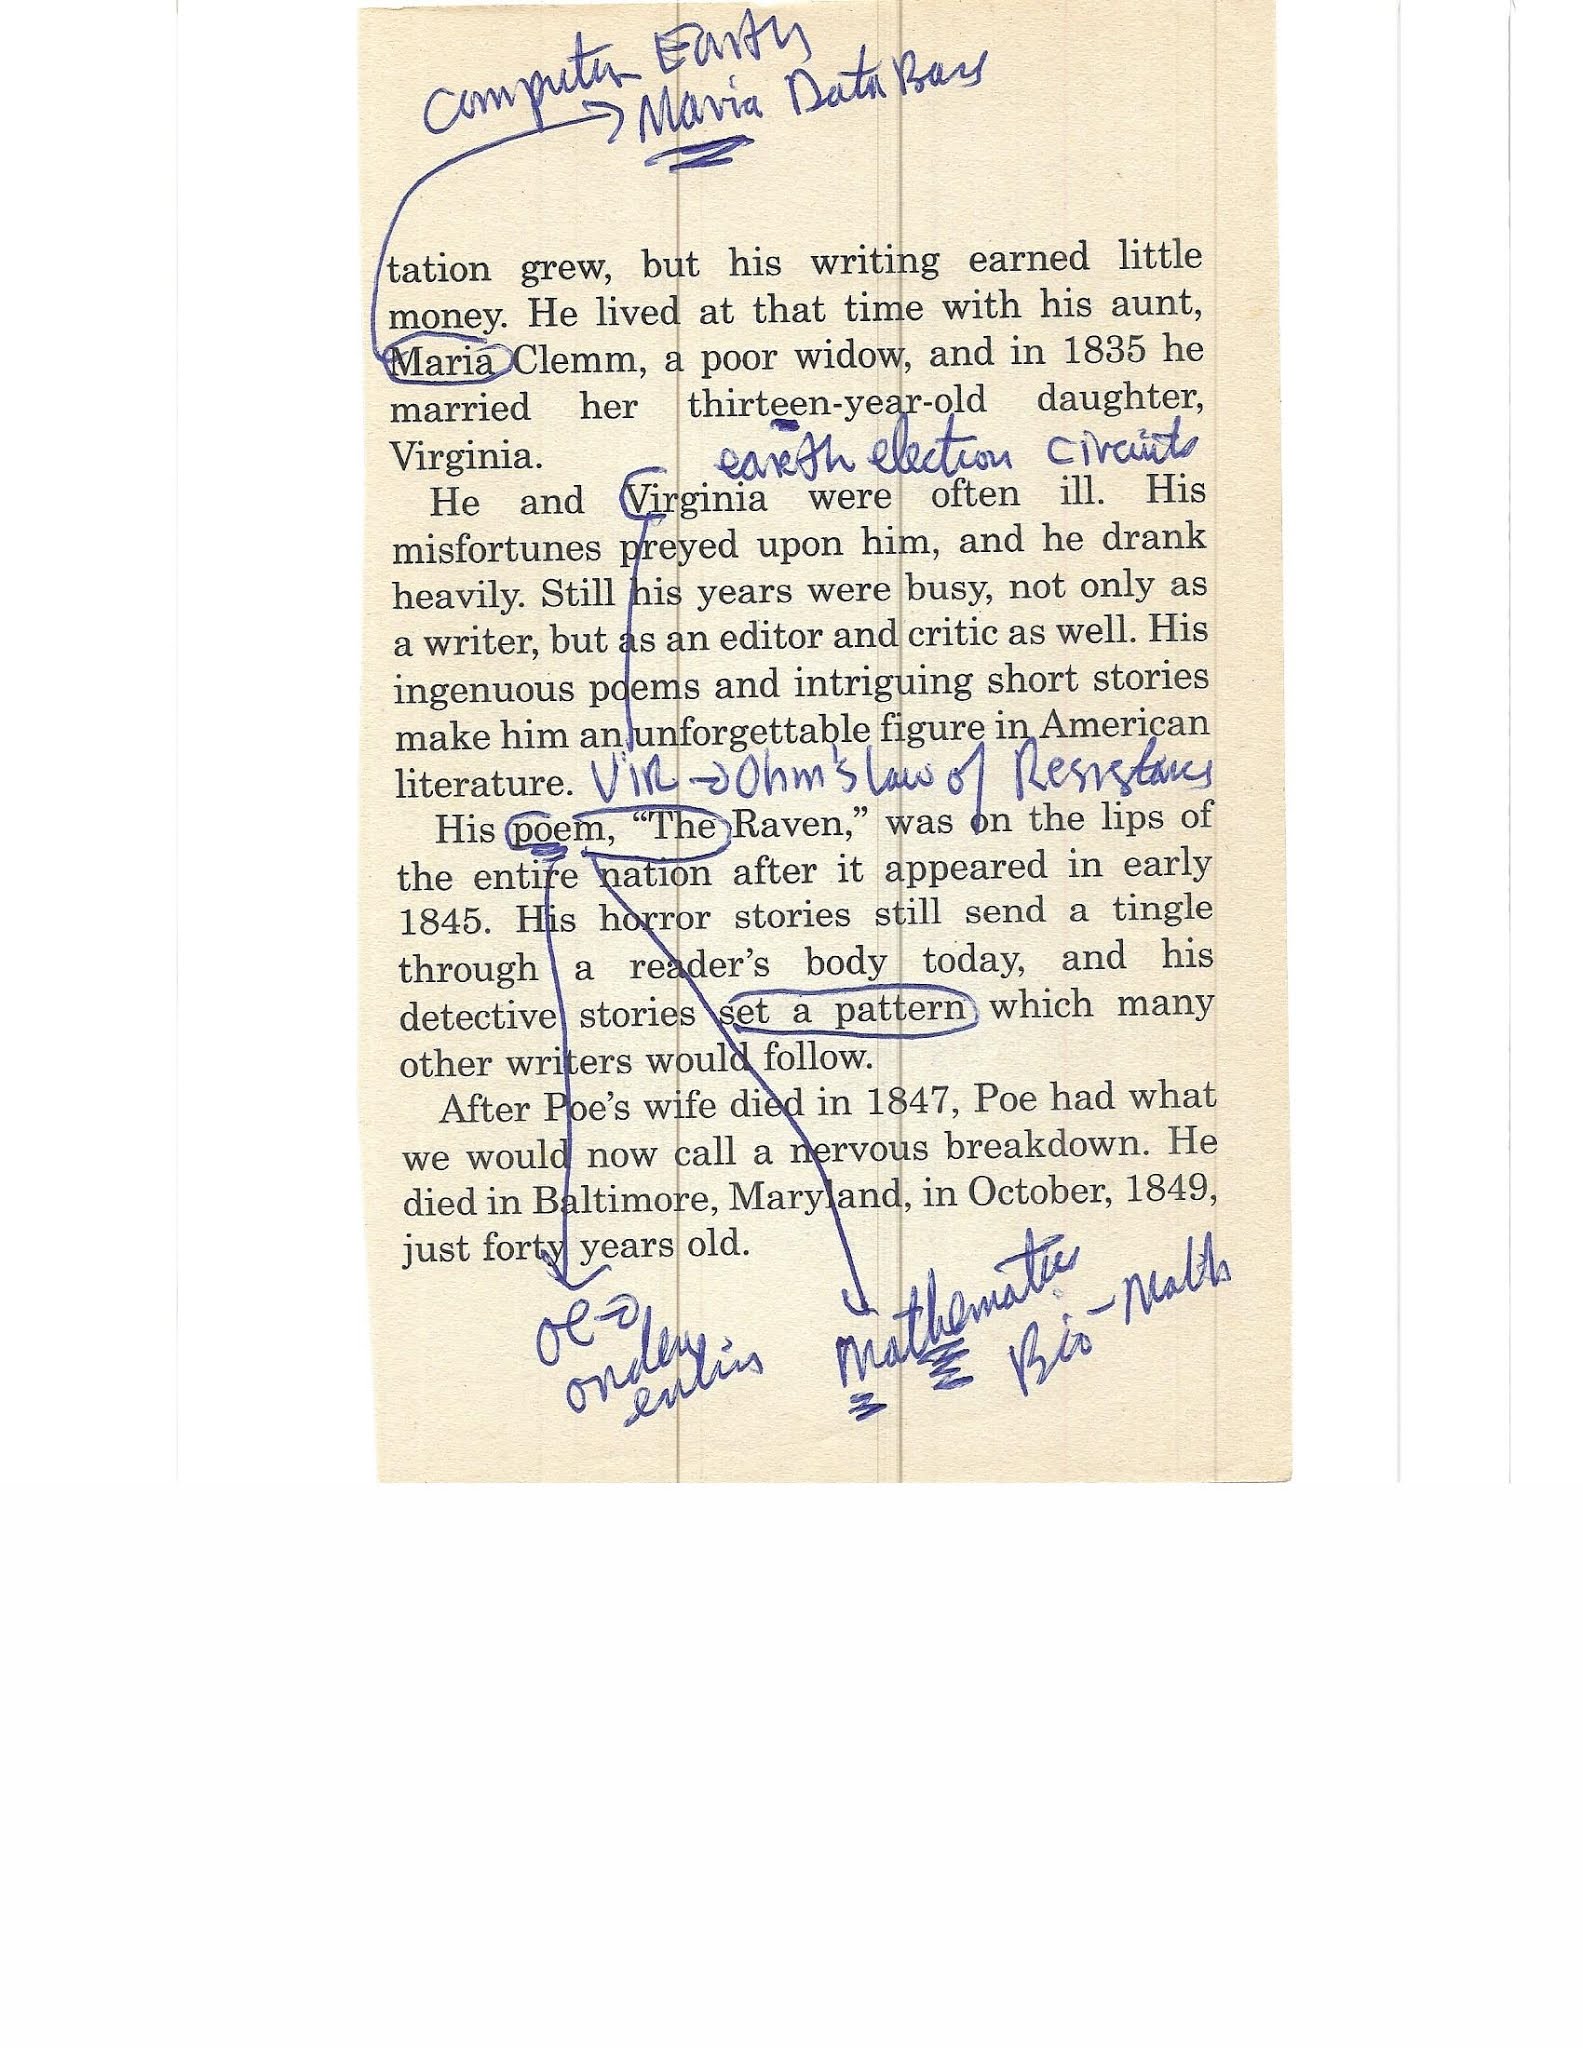 Computer Earth
Maria Data Base
tation grew, but his writing earned little
money. He lived at that time with his aunt,
Maria Clemm, a poor widow, and in 1835 he
married her thirteen-year-old daughter,
Virginia.
earth election circuits
He and Virginia were often ill. His
misfortunes preyed upon him, and he drank
heavily. Still his years were busy, not only as
a writer, but as an editor and critic as well. His
ingenuous poems and intriguing short stories
make him an unforgettable figure in American
literature.
VIR → Ohm's law of Resistance
His poem, “The Raven,” was on the lips of
the entire nation after it appeared in early
1845. His horror stories still send a tingle
through a reader’s body today, and his
detective stories set a pattern which many
other writers would follow.
After Poe’s wife died in 1847, Poe had what
we would now call a nervous breakdown. He
died in Baltimore, Maryland, in October, 1849,
just forty years old.
oe →
order
mathematics
Bio-Math